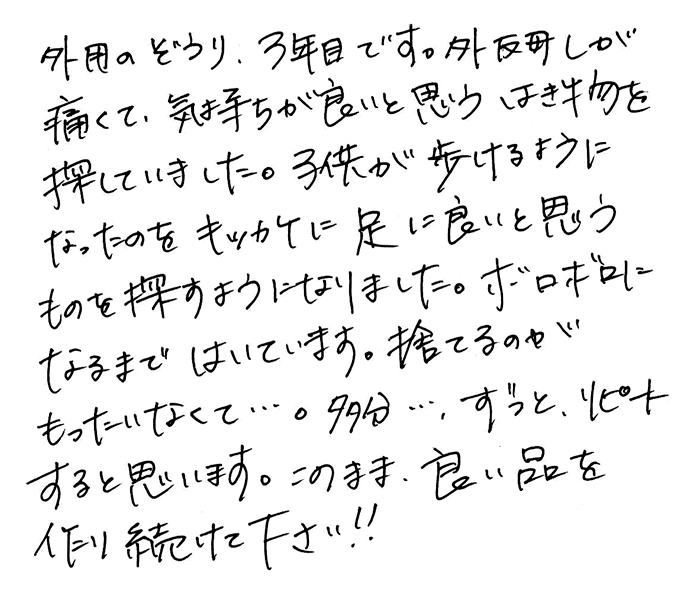 外用のぞうり、3年目です。外反母しが
痛くて、気持ちが良いと思うはき物を
探していました。子供が歩けるように
なったのをキッカケに足に良いと思う
ものを探すようになりました。ボロボロに
なるまではいています。捨てるのが
もったいなくて…。多分…、ずっと、リピート
すると思います。このまま、良い品を
作り続けて下さい!!